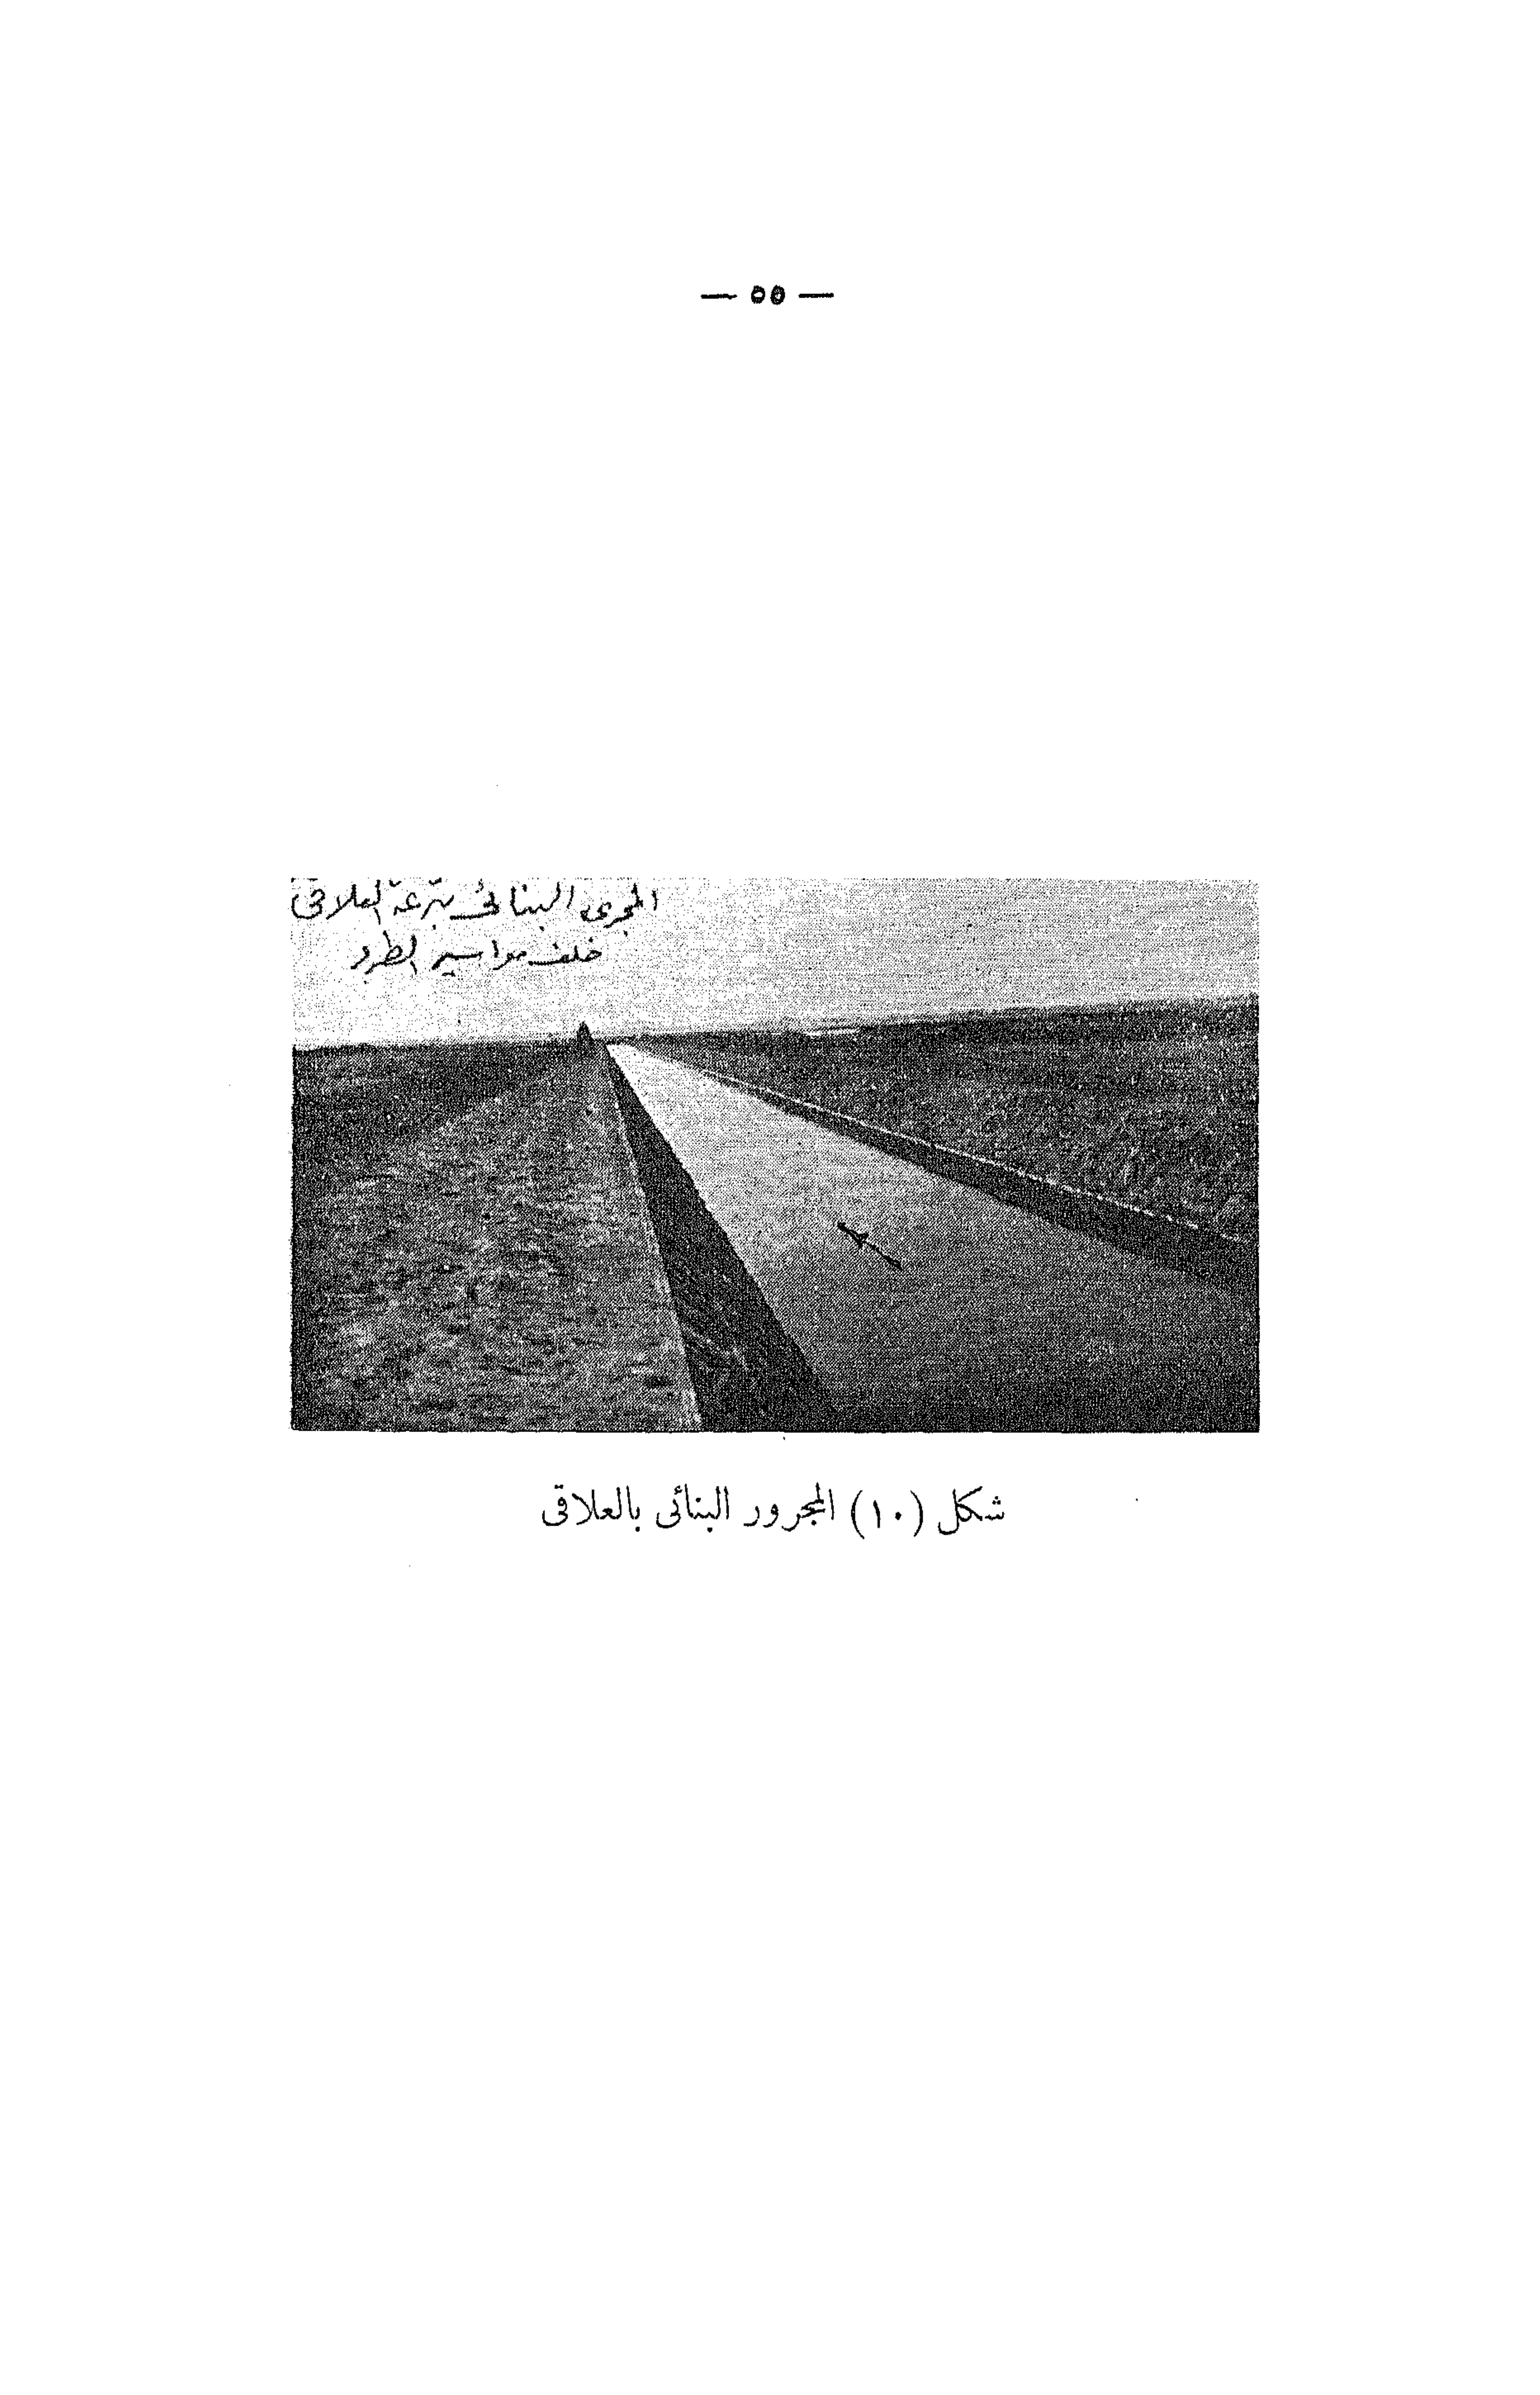 — ٥٥ —
المجرى البنائى بترعة العلاقى
خلف مواسير الطرد
شكل (١٠) المجرور البنائى بالعلاقى